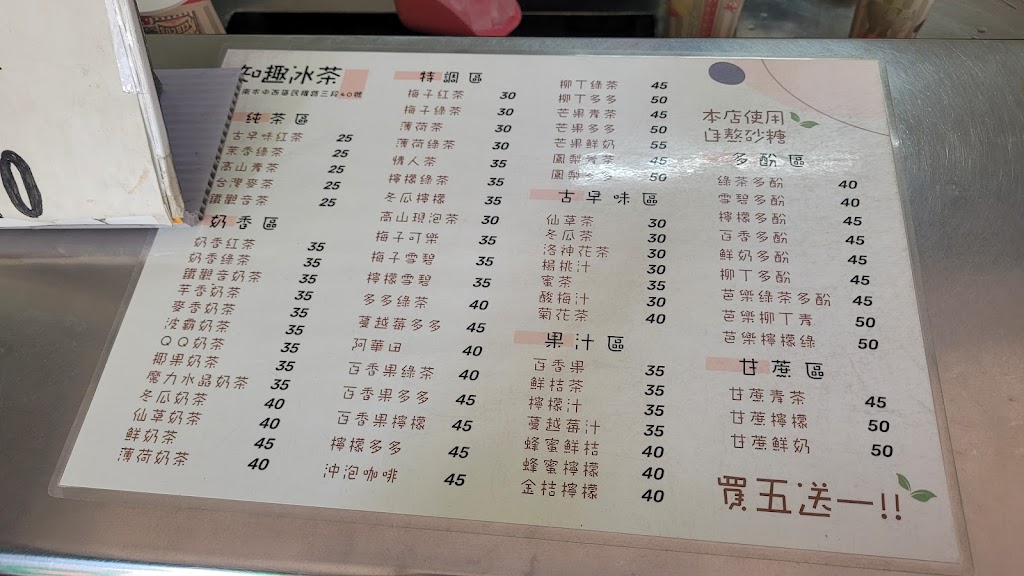 知趣冰茶
南市中西區民權路三段40號
純茶區
古早味紅茶 25
茉香綠茶 25
高山青茶 25
台灣麥茶 25
鐵觀音茶 25
奶香區
奶香紅茶 35
奶香綠茶 35
鐵觀音奶茶 35
芋香奶茶 35
麥香奶茶 35
波霸奶茶 35
QQ奶茶 35
椰果奶茶 35
魔力水晶奶茶 35
冬瓜奶茶 40
仙草奶茶 40
鮮奶茶 45
薄荷奶茶 40
特調區
梅子紅茶 30
梅子綠茶 30
薄荷茶 30
薄荷綠茶 30
情人茶 35
檸檬綠茶 35
冬瓜檸檬 35
高山現泡茶 30
梅子可樂 35
梅子雪碧 35
檸檬雪碧 35
多多綠茶 40
蔓越莓多多 45
阿華田 40
百香果綠茶 40
百香果多多 45
百香果檸檬 45
檸檬多多 45
沖泡咖啡 45
柳丁綠茶 45
柳丁多多 50
芒果青茶 45
芒果多多 50
芒果鮮奶 55
鳳梨青茶 45
鳳梨多多 50
古早味區
仙草茶 30
冬瓜茶 30
洛神花茶 30
楊桃汁 30
蜜茶 35
酸梅汁 30
菊花茶 40
果汁區
百香果 35
鮮桔茶 35
檸檬汁 35
蔓越莓汁 35
蜂蜜鮮桔 40
蜂蜜檸檬 40
金桔檸檬 40
本店使用
自熬砂糖
多酚區
綠茶多酚 40
雪碧多酚 40
檸檬多酚 45
百香多酚 45
鮮奶多酚 45
柳丁多酚 45
芭樂綠茶多酚 45
芭樂柳丁青 50
芭樂檸檬綠 50
甘蔗區
甘蔗青茶 45
甘蔗檸檬 50
甘蔗鮮奶 50
買五送一!!